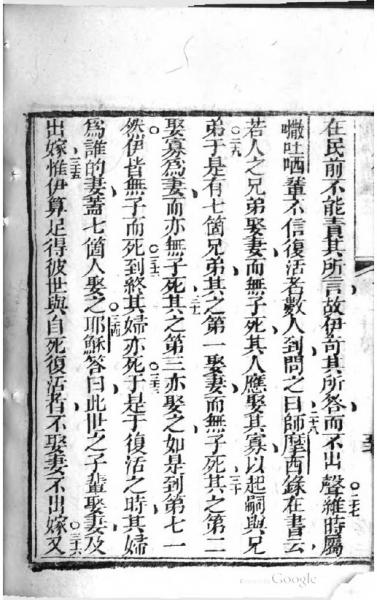 在民前不能責其所言故伊奇其所答而不出聲二七維時屬
吐哂輩不信復活者數人到問之曰二八師摩西錄在書云
若人之兄弟娶妻而無子死其人應娶其寡以起嗣與兄
弟二九于是有七箇兄弟其之第一娶妻而無子死三十其之第二
娶寡為妻而亦無子死三一其之第三亦娶之如是到第七一
然伊皆無子而死三二到終其婦亦死三三于是于復活之時其婦
為誰的妻蓋七箇人娶之三四耶穌答曰此世之子輩娶妻及
出嫁三五惟伊算足得彼世與自死復活者不娶妻不出嫁三六又
Google